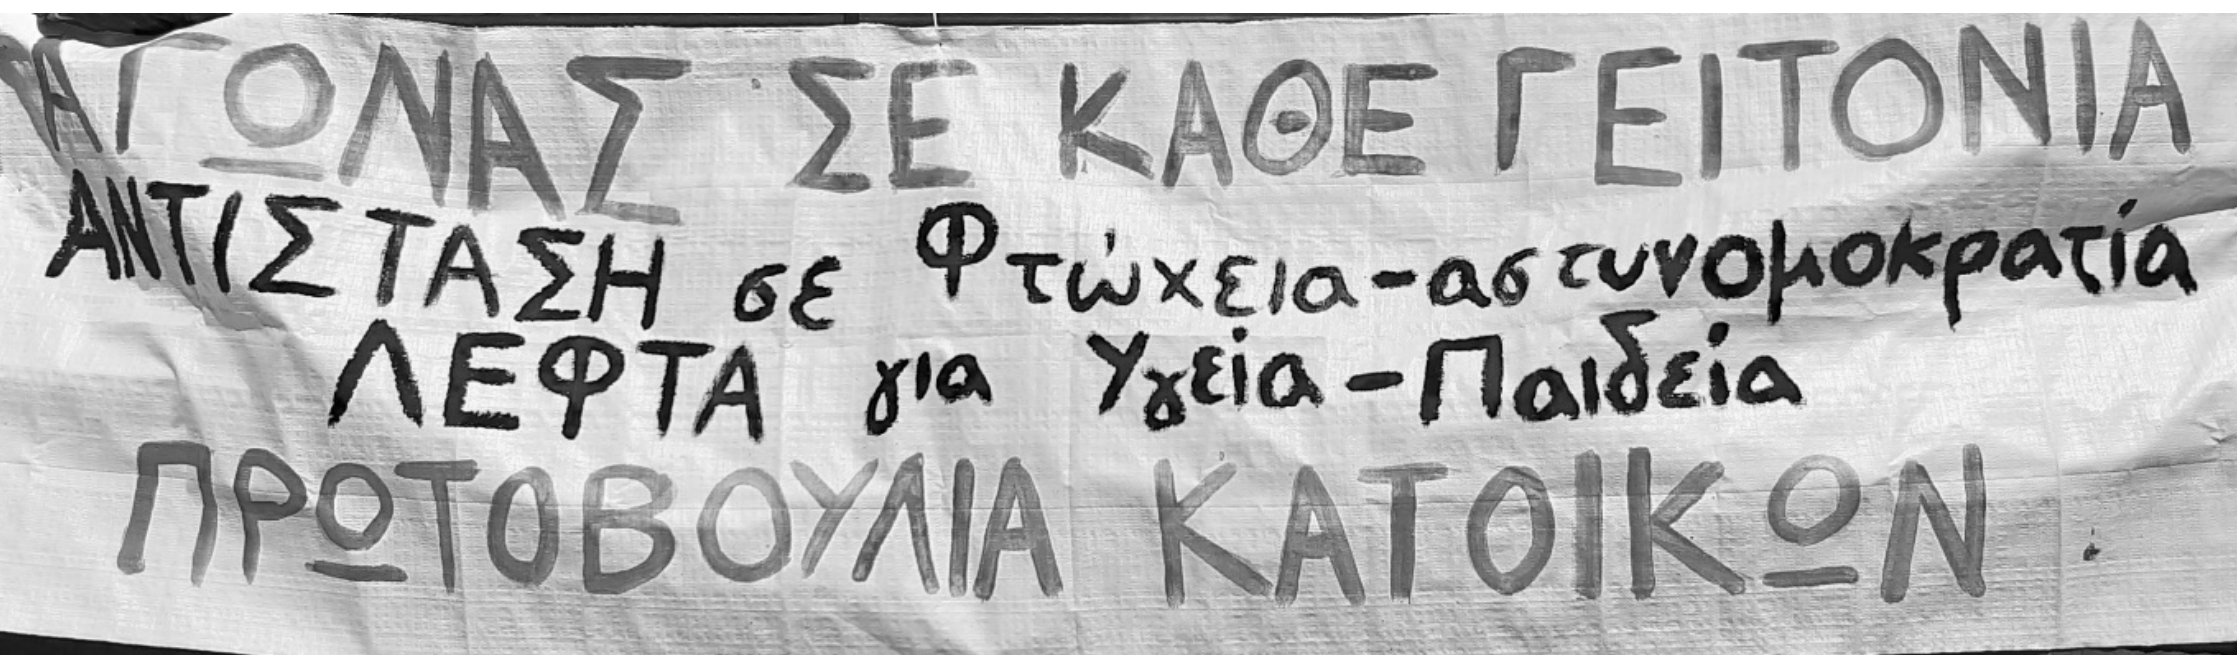 ΑΓΩΝΑΣ ΣΕ ΚΑΘΕ ΓΕΙΤΟΝΙΑ
ΑΝΤΙΣΤΑΣΗ σε Φτώχεια-αστυνομοκρατία
ΛΕΦΤΑ για Υγεία-Παιδεία
ΠΡΩΤΟΒΟΥΛΙΑ ΚΑΤΟΙΚΩΝ